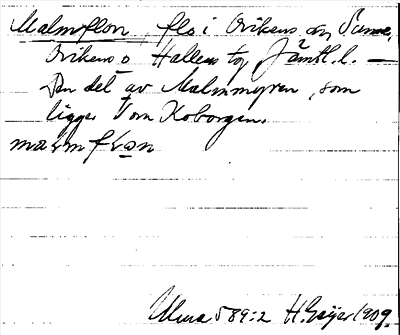 Malmflon, flo i Ovikens o Sunne,
Ovikens o Hallens tg, Jämtl. l. —
Den del av Malmmyren, som
ligger Vom Koborgen.
malmflon
Ulma 589:2 H. Geijer 1909.